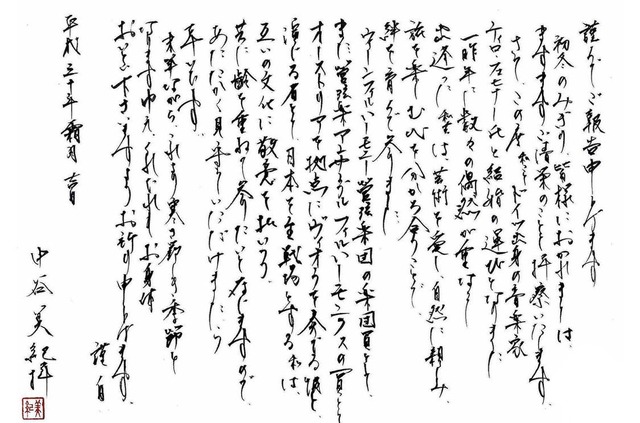 謹んでご報告申し上げます
初冬のみぎり、皆様におかれましては、
ますますご清栄のことと拝察いたします。
さて、この度私はドイツ出身の音楽家
ティロ・フェヒナー氏と結婚の運びとなりました。
一昨年に数々の偶然が重なり
出逢った私達は、芸術を愛し自然に親しみ
旅を楽しむひとときを分かち合うことで
絆を育んで参りました。
ウィーンフィルハーモニー管弦楽団の楽団員として、
また、管弦楽アンサンブルフィルハーモニクスの一員として
オーストリアを拠点にヴィオラを奏でる彼と、
演じる者として日本を主戦場とする私は
互いの文化に敬意を払いつつ
共に齢を重ねて参りたいと存じますので、
あたたかく見守っていただけましたら
幸いです。
末筆ながら、これより寒さ厳しき季節と
なりますゆえ、くれぐれもお身体
おいといくださいますようお祈り申し上げます。
謹白
平成三十年霜月吉日
中谷美紀拝
美紀